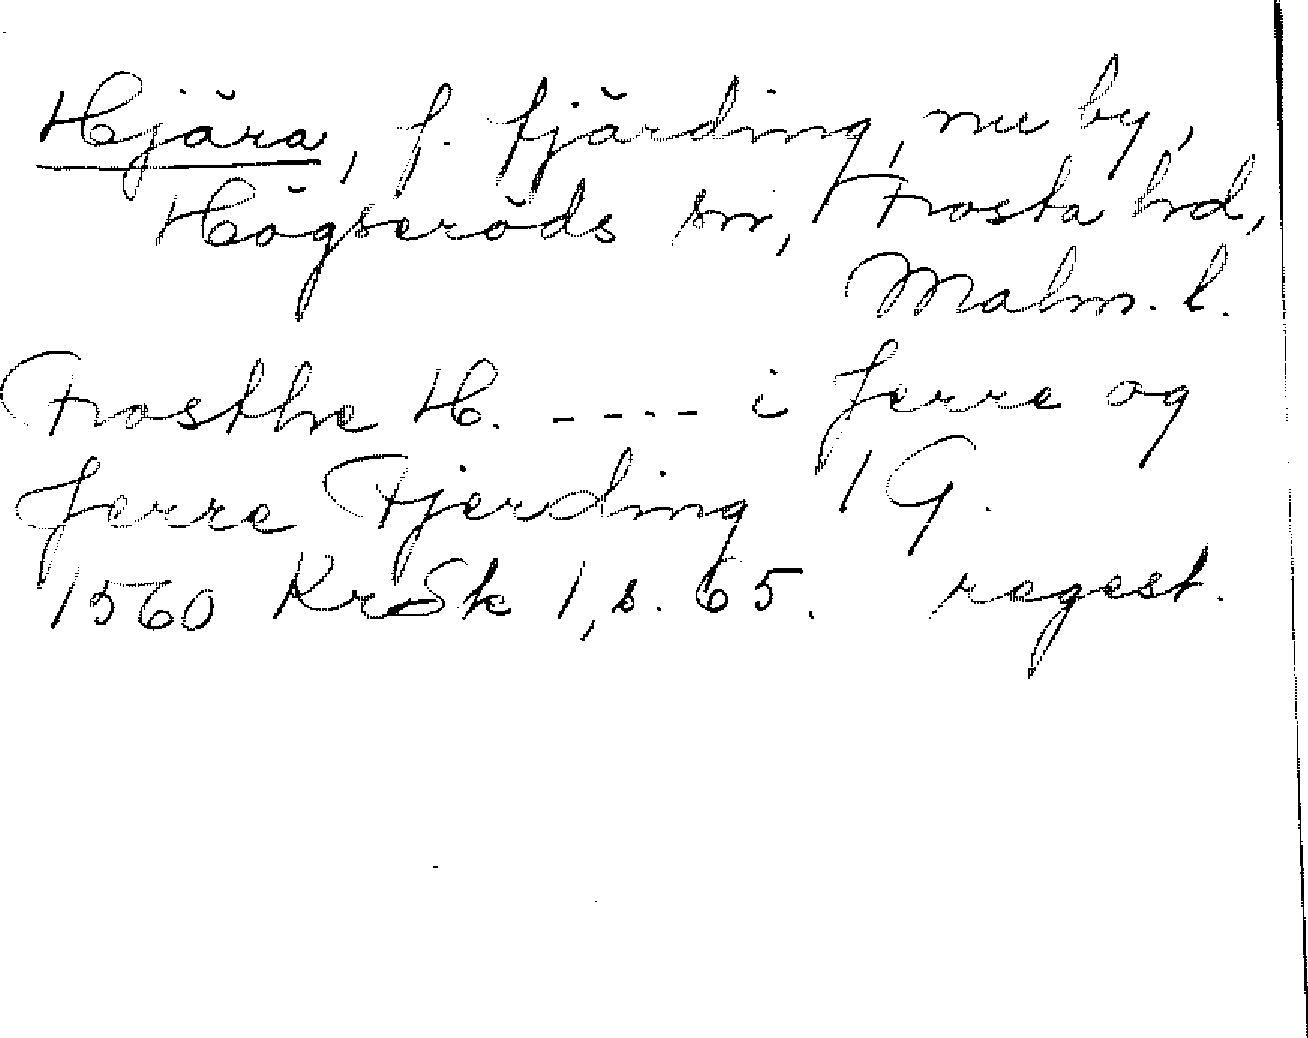 Hjära, f. fjärding, nu by,
Högseröds sn, Frosta hd,
Malm. l.
Frosthe H. ---- i Jerre og
Jerre Fjerding 1 G.
1560 KrSk 1, s. 65. regest.